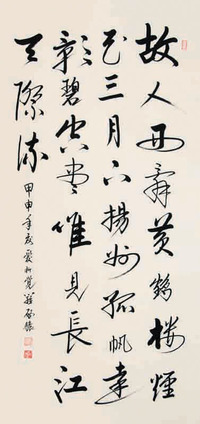 故人西辭黃鶴樓煙
花三月下揚州孤帆遠
影碧空盡唯見長江
天際流
甲申年 愛新覺羅